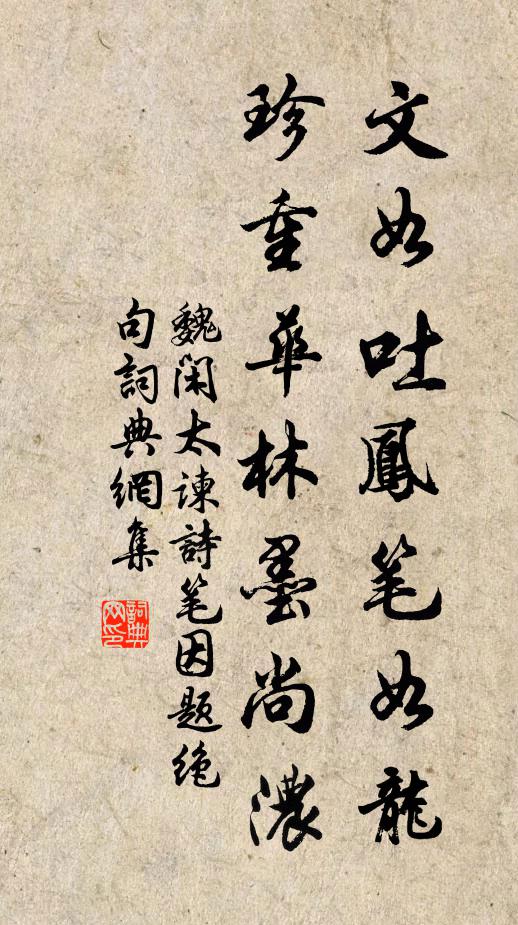 文如吐鳳笔如龍
珍重華林墨尚濃
魏闲太谏詩笔因题绝
句詞典網集
詞典网印